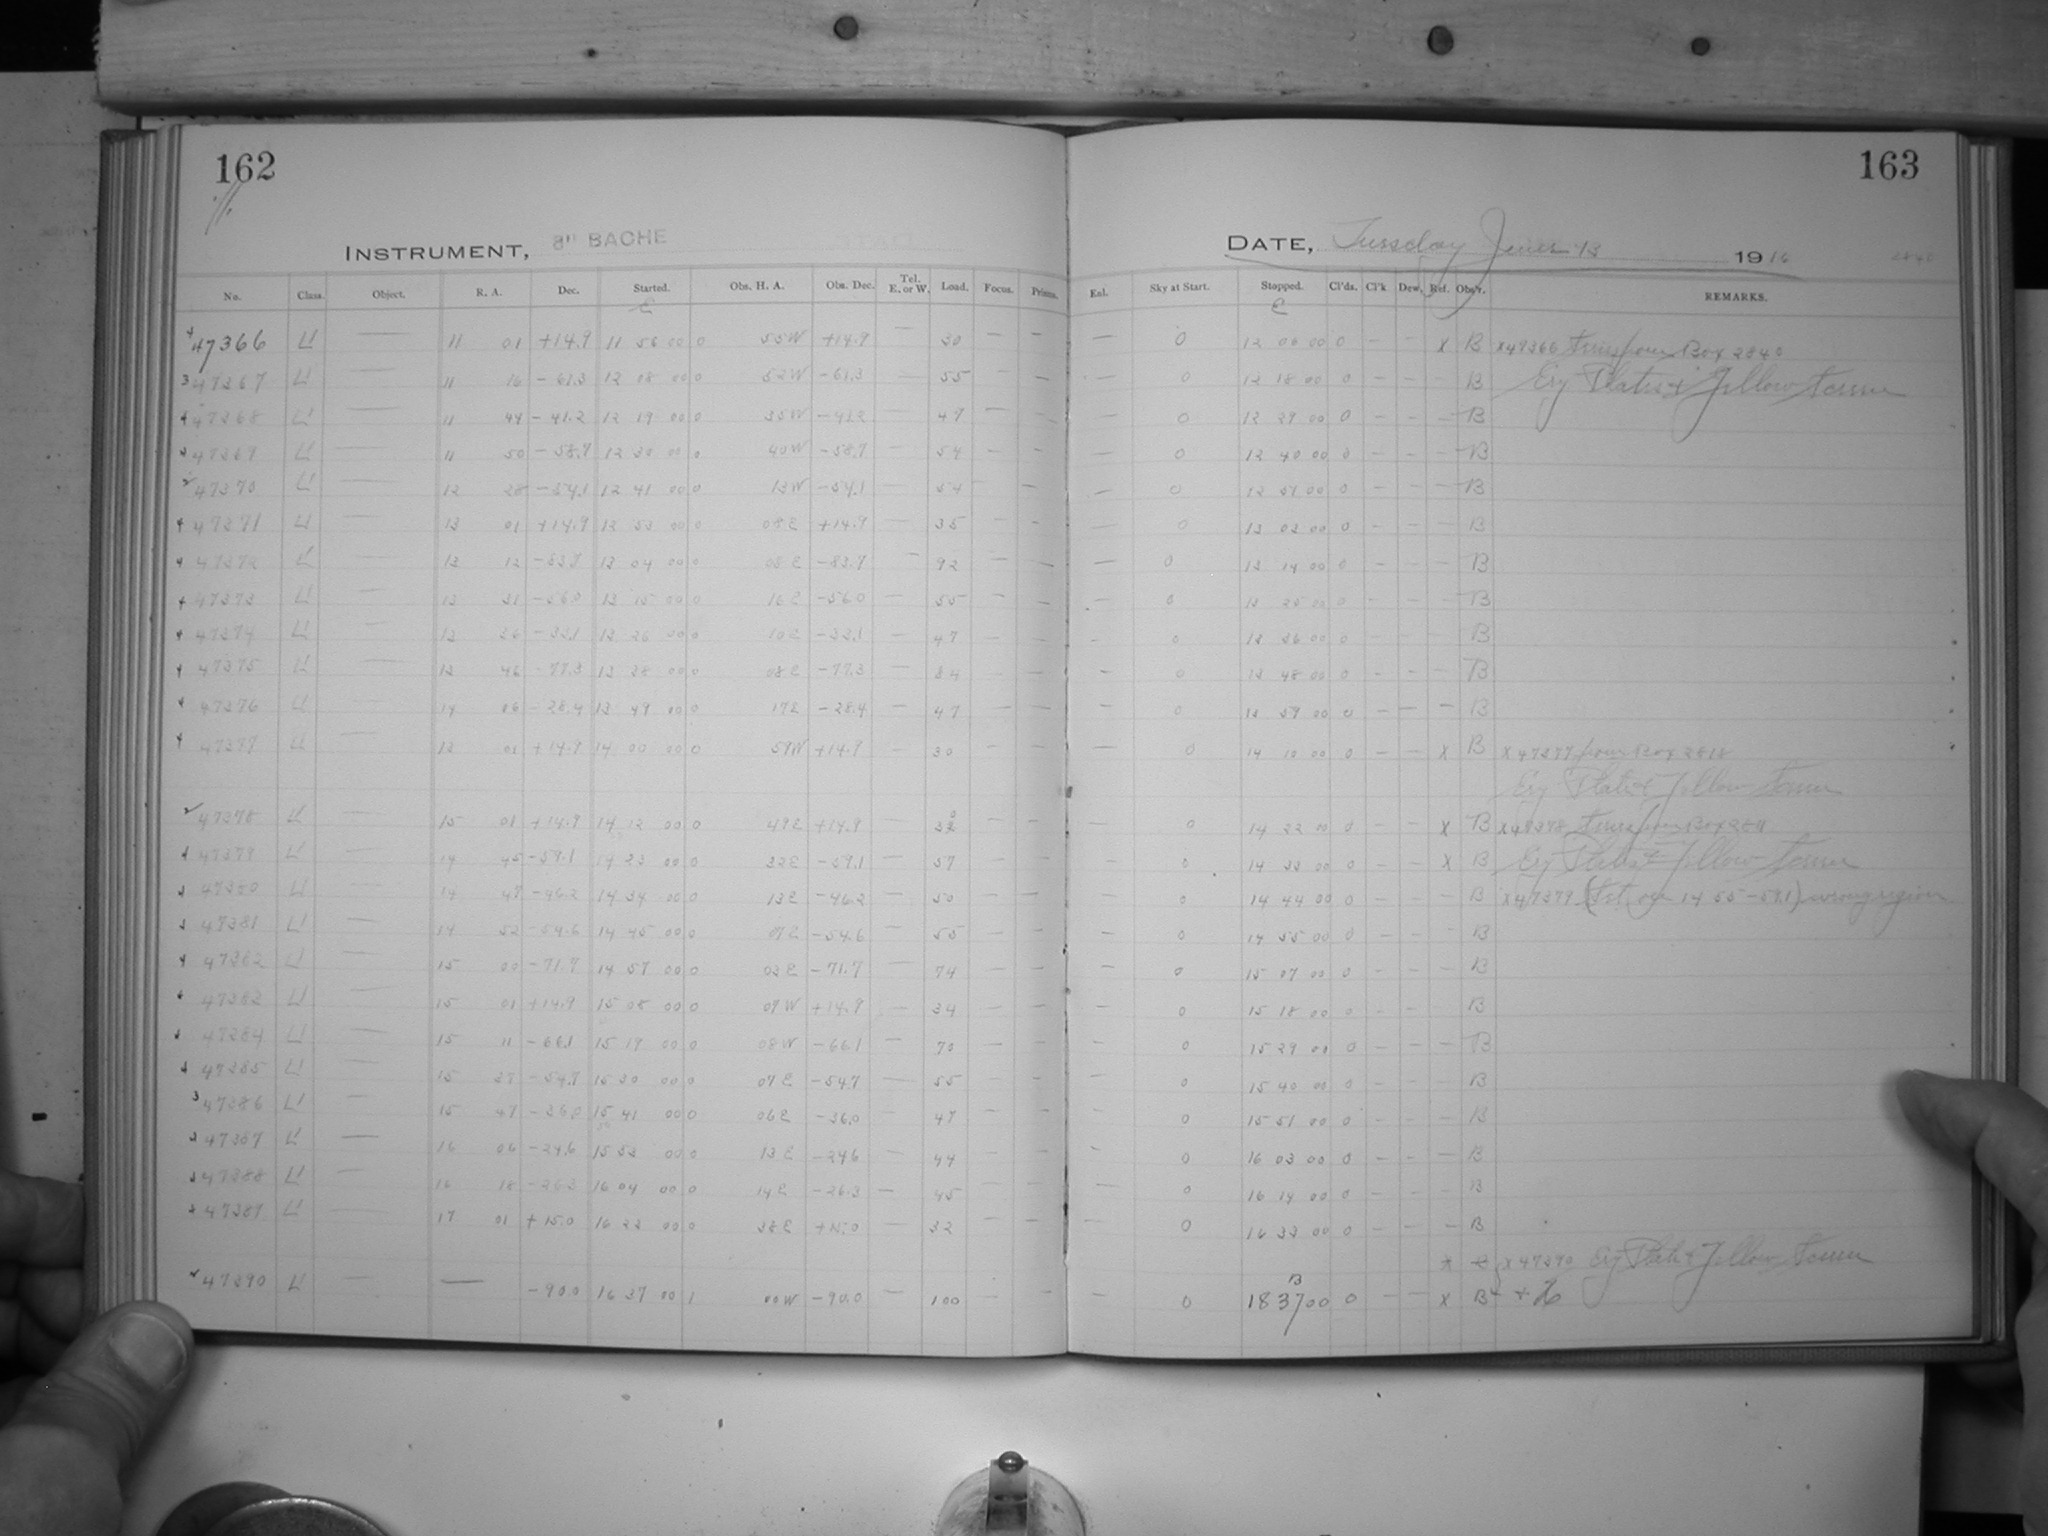 162
INSTRUMENT, 8" BACHE
No. Class. Object. R. A. Dec. Started. Obs. H. A. Obs. Dec. Tel. E. or W. Load. Focus. Prisms.
E
47366 — 11 01 +14.9 11 56 00 0 55W +14.9 — 30 — —
47367 — 11 16 -61.3 12 08 00 0 52W -61.3 — 55 — —
47368 — 11 44 -41.2 12 19 00 0 35W -41.2 — 47 — —
47369 — 11 50 -58.7 12 30 00 0 40W -58.7 — 54 — —
47370 — 12 28 -54.1 12 41 00 0 13W -54.1 — 54 — —
47371 — 13 01 +14.9 12 53 00 0 08E +14.9 — 35 — —
47372 — 13 12 -83.7 13 04 00 0 08E -83.7 — 92 — —
47373 — 13 31 -56.0 13 15 00 0 16E -56.0 — 55 — —
47374 — 13 36 -33.1 13 26 00 0 10E -33.1 — 47 — —
47375 — 13 46 -77.3 13 38 00 0 08E -77.3 — 84 — —
47376 — 14 06 -28.4 13 49 00 0 17E -28.4 — 47 — —
47377 — 13 01 +14.9 14 00 00 0 59W +14.9 — 30 — —
47378 — 15 01 +14.9 14 12 00 0 49E +14.9 —
47379 — 14 45 -59.1 14 23 00 0 32E -59.1 — 57 — —
47380 — 14 47 -46.2 14 34 00 0 13E -46.2 — 50 — —
47381 — 14 52 -54.6 14 45 00 0 07E -54.6 — 55 — —
47382 — 15 00 -71.7 14 57 00 0 03E -71.7 — 74 — —
47383 — 15 01 +14.9 15 08 00 0 07W +14.9 — 34 — —
47384 — 15 11 -66.1 15 19 00 0 08W -66.1 — 70 — —
47385 — 15 37 -54.7 15 30 00 0 07E -54.7 — 55 — —
47386 — 15 47 -36.0 15 41 00 0 06E -36.0 — 47 — —
47387 — 16 06 -24.6 15 53 00 0 13E -24.6 — 44 — —
47388 — 16 18 -26.3 16 04 00 0 14E -26.3 — 45 — —
47389 — 17 01 +15.0 16 23 00 0 38E +15.0 — 32 — —
47390 — — -90.0 16 37 00 1 00W -90.0 — 100 — —
163
DATE, Tuesday June 13 1916
Exl. Sky at Start. Stopped. Cl'ds. Cl'k Dew. Ref. Obs'r. REMARKS.
E
— 0 12 06 00 0 — — X B X47366 from Box 2840
— 0 12 18 00 0 — — — B Plates + Yellow
— 0 12 29 00 0 — — — B
— 0 12 40 00 0 — — — B
— 0 12 51 00 0 — — — B
— 0 13 03 00 0 — — — B
— 0 13 14 00 0 — — — B
— 0 13 25 00 0 — — — B
— 0 13 36 00 0 — — — B
— 0 13 48 00 0 — — — B
— 0 13 59 00 0 — — — B
— 0 14 10 00 0 — — X B X47377 from Box
Plate + Yellow
— 0 14 22 00 0 — — X B X47378 from Box
— 0 14 33 00 0 — — X B Plates + Yellow
— 0 14 44 00 0 — — — B X47379 14 55 -59.1) wrong region
— 0 14 55 00 0 — — — B
— 0 15 07 00 0 — — — B
— 0 15 18 00 0 — — — B
— 0 15 29 00 0 — — — B
— 0 15 40 00 0 — — — B
— 0 15 51 00 0 — — — B
— 0 16 03 00 0 — — — B
— 0 16 14 00 0 — — — B
— 0 16 33 00 0 — — — B
X47390 Plate + Yellow
— 0 18 37 00 0 — — X B